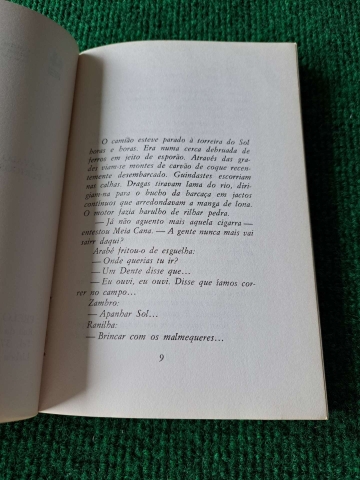 O camião esteve parado à torreira do Sol
horas e horas. Era numa cerca debruada de
ferros em jeito de esporão. Através das gra-
des viam-se montes de carvão de coque recen-
temente desembarcado. Guindastes escorriam
nas calhas. Dragas tiravam lama do rio, diri-
giam-na para o bucho da barcaça em jactos
contínuos que arredondavam a manga de lona.
O motor fazia barulho de rilhar pedra.
— Já não aguento mais aquela cigarra —
contestou Meia Cana. — A gente nunca mais vai
sair daqui?
Arabê fritou-o de esguelha:
— Onde querias tu ir?
— Um Dente disse que...
— Eu ouvi, eu ouvi. Disse que íamos cor-
rer no campo...
Zambro:
— Apanhar Sol...
Ranilha:
— Brincar com os malmequeres...
9